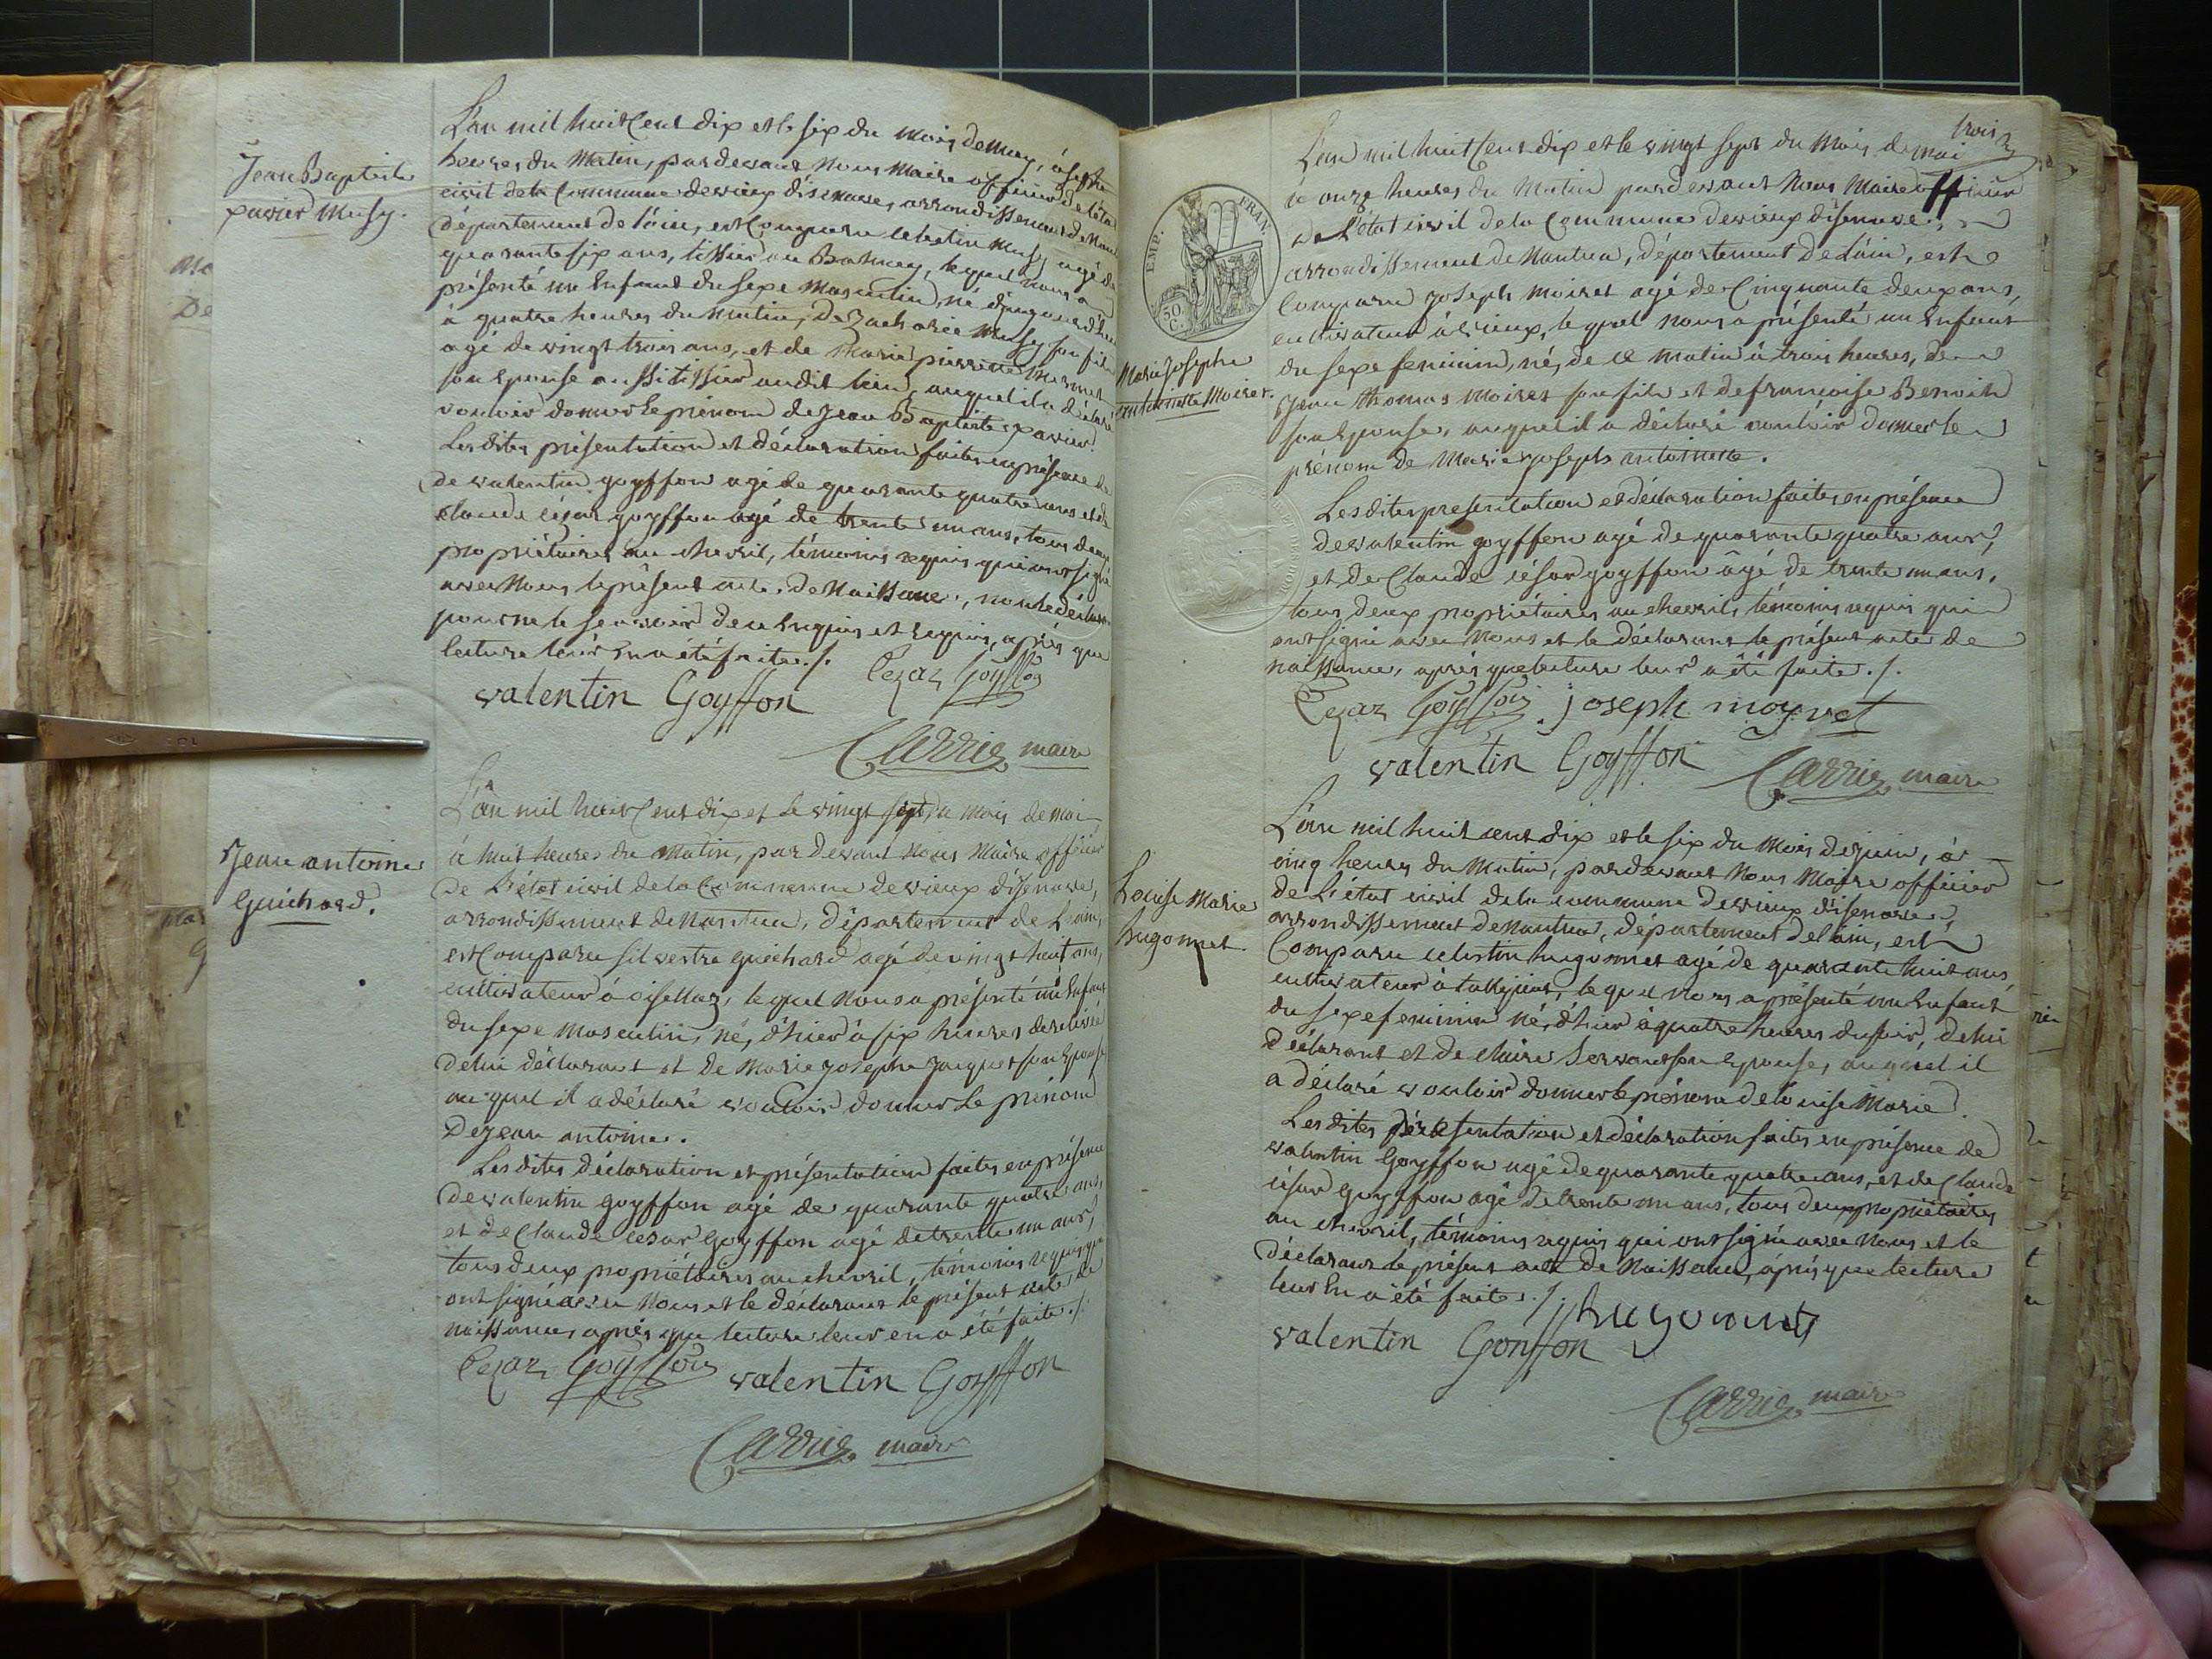 Jean Baptiste
xavier Musy.
L'an mil huit Cent dix et le six du mois de may, à sept
heures du Matin, pardevant Nous Maire officier de l'état
civil de la Commune de vieux d'isenave, arrondissement de Nan
département de l'ain, est Comparu celestin Musy agé de
quarante six ans, tissier au Balmay, lequel nous a
présenté un Enfant du sexe Masculin, né d'aujourd'hui
à quatre heures du Matin, de Zacharie Musy son fils
agé de vingt trois ans, et de Marie pierrette Mermet
son Epouse aussi tissier audit lieu, auquel il a déclaré
vouloir donner le prénom de Jean Baptiste xavier.
Les dites présentation et déclaration faites en présence de
de valentin goyffon agé de quarante quatre ans et de
claude césar goyffon agé de trente un ans, tous deux
propriétaires au chevril, témoins requis qui ont signé
avec Nous le présent acte de Naissance, non le déclarant
pour ne le scavoir de ce Enquis et requis, après que
lecture leur En a été faite ./.
valentin Goyffon Cezar Goyffon
Carrier maire
Jean antoine
Guichard.
L'an mil huit Cent dix et le vingt sept du mois de mai
à huit heures du Matin, par devant nous Maire officier
de L'état civil de la Commune de vieux d'Isenave,
arrondissement de Nantua, département de L'ain,
est Comparu silvestre guichard agé de vingt huit ans,
cultivateur à oisellaz, lequel Nous a présenté un Enfant
du sexe Masculin, né, d'hier à six heures du soir
de lui déclarant et de Marie josephe jacquet son Epouse
au quel il a déclaré vouloir donner Le prénom
De jean antoine.
Les dites déclaration et présentation faites en présence
de valentin goyffon agé de quarante quatre ans,
et de Claude cesar Goyffon agé de trente un ans,
tous deux propriétaires au chevril, témoins requis qui
ont signé avec Nous et le déclarant le présent acte de
naissance, après que lecture leur en a été faite ./.
Cezar Goyffon valentin Goyffon
Carrier maire
trois
EMP. FRAN.
50 C.
Marie Josephe
antoinette Moiret.
L'an mil huit Cent dix et le vingt sept du Mois de mai
à onze heures du Matin pardevant Nous Maire officier
de L'état civil de la Commune de vieux d'isenave,
arrondissement de Nantua, département de L'ain, est
Comparu joseph moiret agé de Cinquante deux ans,
cultivateur à vieux, lequel nous a présenté un Enfant
du sexe feminin, né, de ce matin à trois heures, de
Jean thomas moiret son fils et de francoise Benoit
son Epouse, auquel il a déclaré vouloir donner le
prénom de Marie joseph antoinette.
Les dites presentation et déclaration faites en présence
de valentin goyffon agé de quarante quatre ans,
et de Claude césar goyffon âgé de trente un ans,
tous deux propriétaires au chevril, témoins requis qui
ont signé avec Nous et le déclarant le présent acte de
naissance, après que lecture leur a été faite ./.
Cezar Goyffon joseph moyret
valentin Goyffon Carrier maire
Louise Marie
hugonnet
L'an mil huit cent dix et le six du Mois de juin, à
cinq heures du Matin, pardevant Nous Maire officier
de L'état civil de la commune de vieux d'isenave,
arrondissement de Nantua, département de l'ain, est
Comparu celestin hugonnet agé de quarante huit ans,
cultivateur à tallijiout, lequel nous a présenté un Enfant
du sexe feminin né, d'hier à quatre heures du soir, de lui
déclarant et de claire Servant son Epouse, auquel il
a déclaré vouloir donner le prénom de Louise Marie.
Les dites présentation et déclaration faites en présence de
valentin Goyffon agé de quarante quatre ans, et de Claude
césar goyffon agé de trente un ans, tous deux propriétaires
au chevril, témoins requis qui ont signé avec Nous et le
déclarant le présent acte de Naissance, après que lecture
leur En a été faite ./. hugonnet
valentin Goyffon
Carrier maire